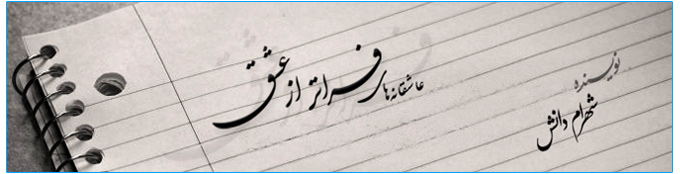 عاشقانه‌های فراتر از عشق
نویسنده
شهرام دانش